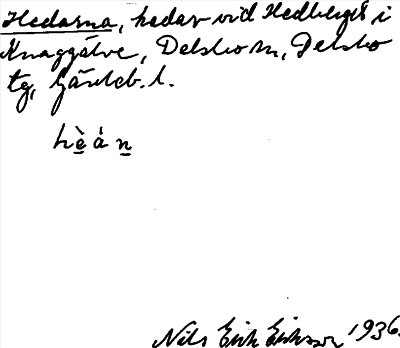 Hedarna, hedar vid Hedbergs i
Knaggälve, Delsbo sn, Delsbo
tg, Gävleb. l.
hèán
Nils Erik Eriksson 1936.